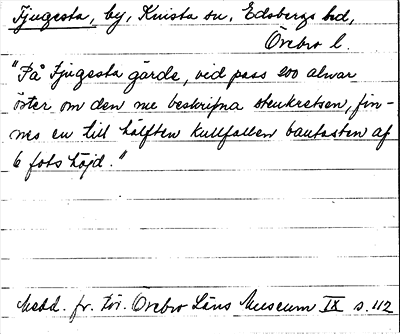 Tjugesta, by, Knista sn, Edsbergs hd,
Örebro l.
"På Tjugesta gärde, vid pass 200 alnar
öster om den nu beskrifna stenkretsen, fin-
nes en till hälften kullfallen bautasten af
6 fots höjd."
Medd. fr. För. Örebro Läns Museum IX s. 112